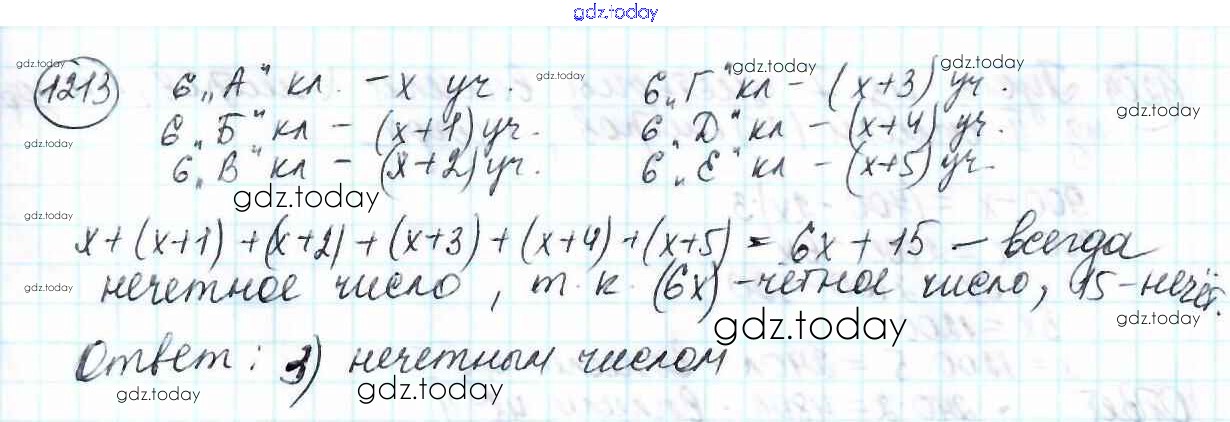 gdz.today
1213 6 „А" кл. - х уч. 6 „Г" кл - (х+3) уч.
6 „Б" кл - (х+1) уч. 6 „Д" кл - (х+4) уч.
6 „В" кл - (х+2) уч. 6 „Е" кл - (х+5) уч.
х+(х+1)+(х+2)+(х+3)+(х+4)+(х+5) = 6х+15 - всегда
нечетное число, т. к. (6х) - четное число, 15 - нечёт.
Ответ: 3) нечетным числом
gdz.today
gdz.today
gdz.today
gdz.today
gdz.today
gdz.today
gdz.today
gdz.today
gdz.today
gdz.today
gdz.today
gdz.today
gdz.today
gdz.today